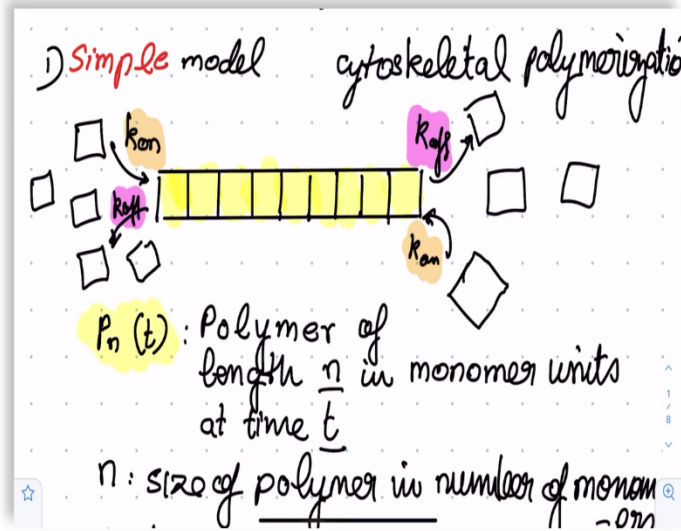 1) Simple model cytoskeletal polymerizatio
kon koff
koff
kon
Pn (t) : Polymer of
length n in monomer units
at time t
n : size of polymer in number of monom
-ers
1
/
8